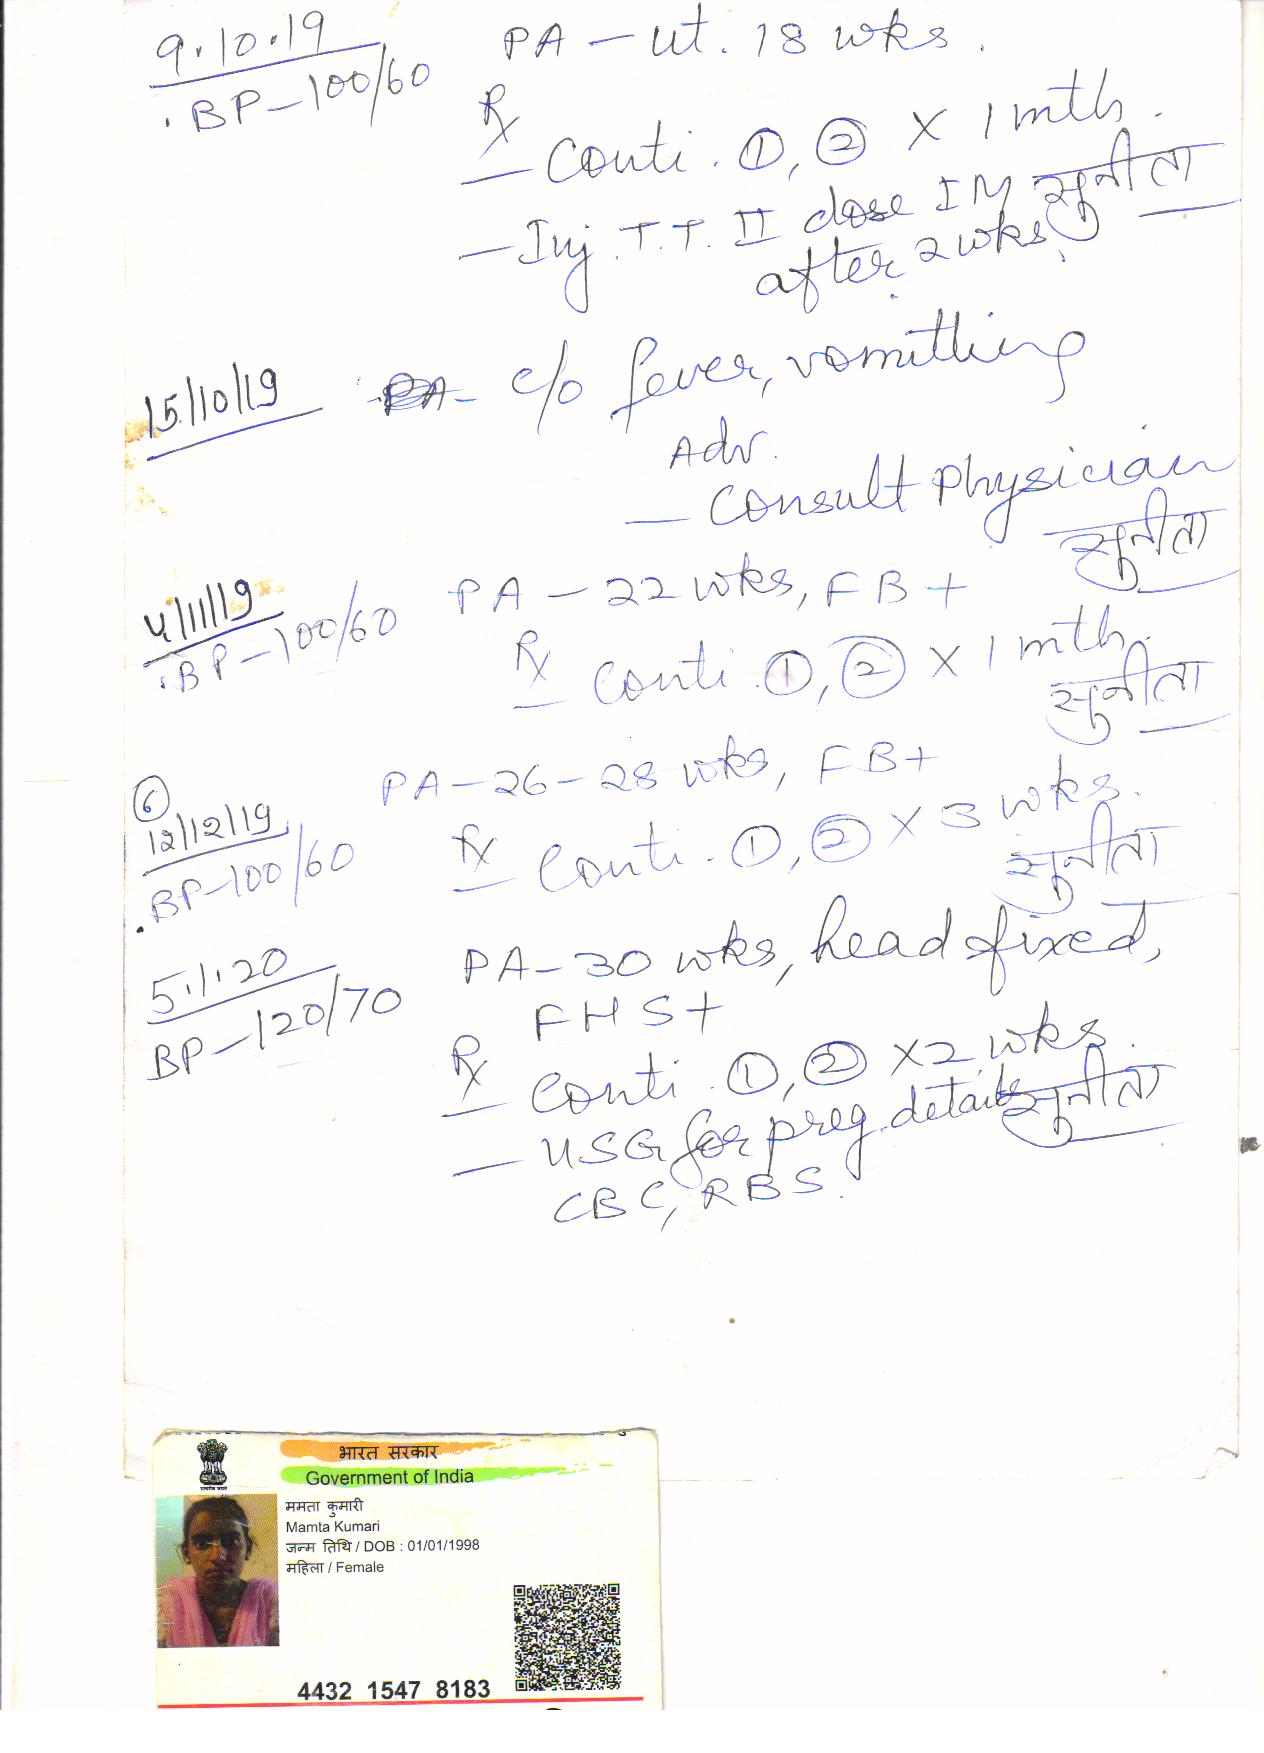 9.10.19
BP-100/60
PA - ut. 18 wks.
Rx
- Conti. ①, ② X 1 mth.
सुनीता
- Inj. T.T. II dose IM
after 2 wks.
15/10/19
PA - c/o fever, vomitting
Adv.
- Consult Physician
सुनीता
4/11/19
BP-100/60
PA - 22 wks, FB+
Rx
- Conti. ①, ② X 1 mth.
सुनीता
⑥
12/12/19
BP-100/60
PA-26-28 wks, FB+
Rx
- Conti. ①, ② X 3 wks.
सुनीता
5.1.20
BP-120/70
PA-30 wks, head fixed,
FHS+
Rx
- Conti. ①, ② X 2 wks.
सुनीता
- USG for preg. details
CBC, RBS.
भारत सरकार
Government of India
ममता कुमारी
Mamta Kumari
जन्म तिथि / DOB : 01/01/1998
महिला / Female
4432 1547 8183